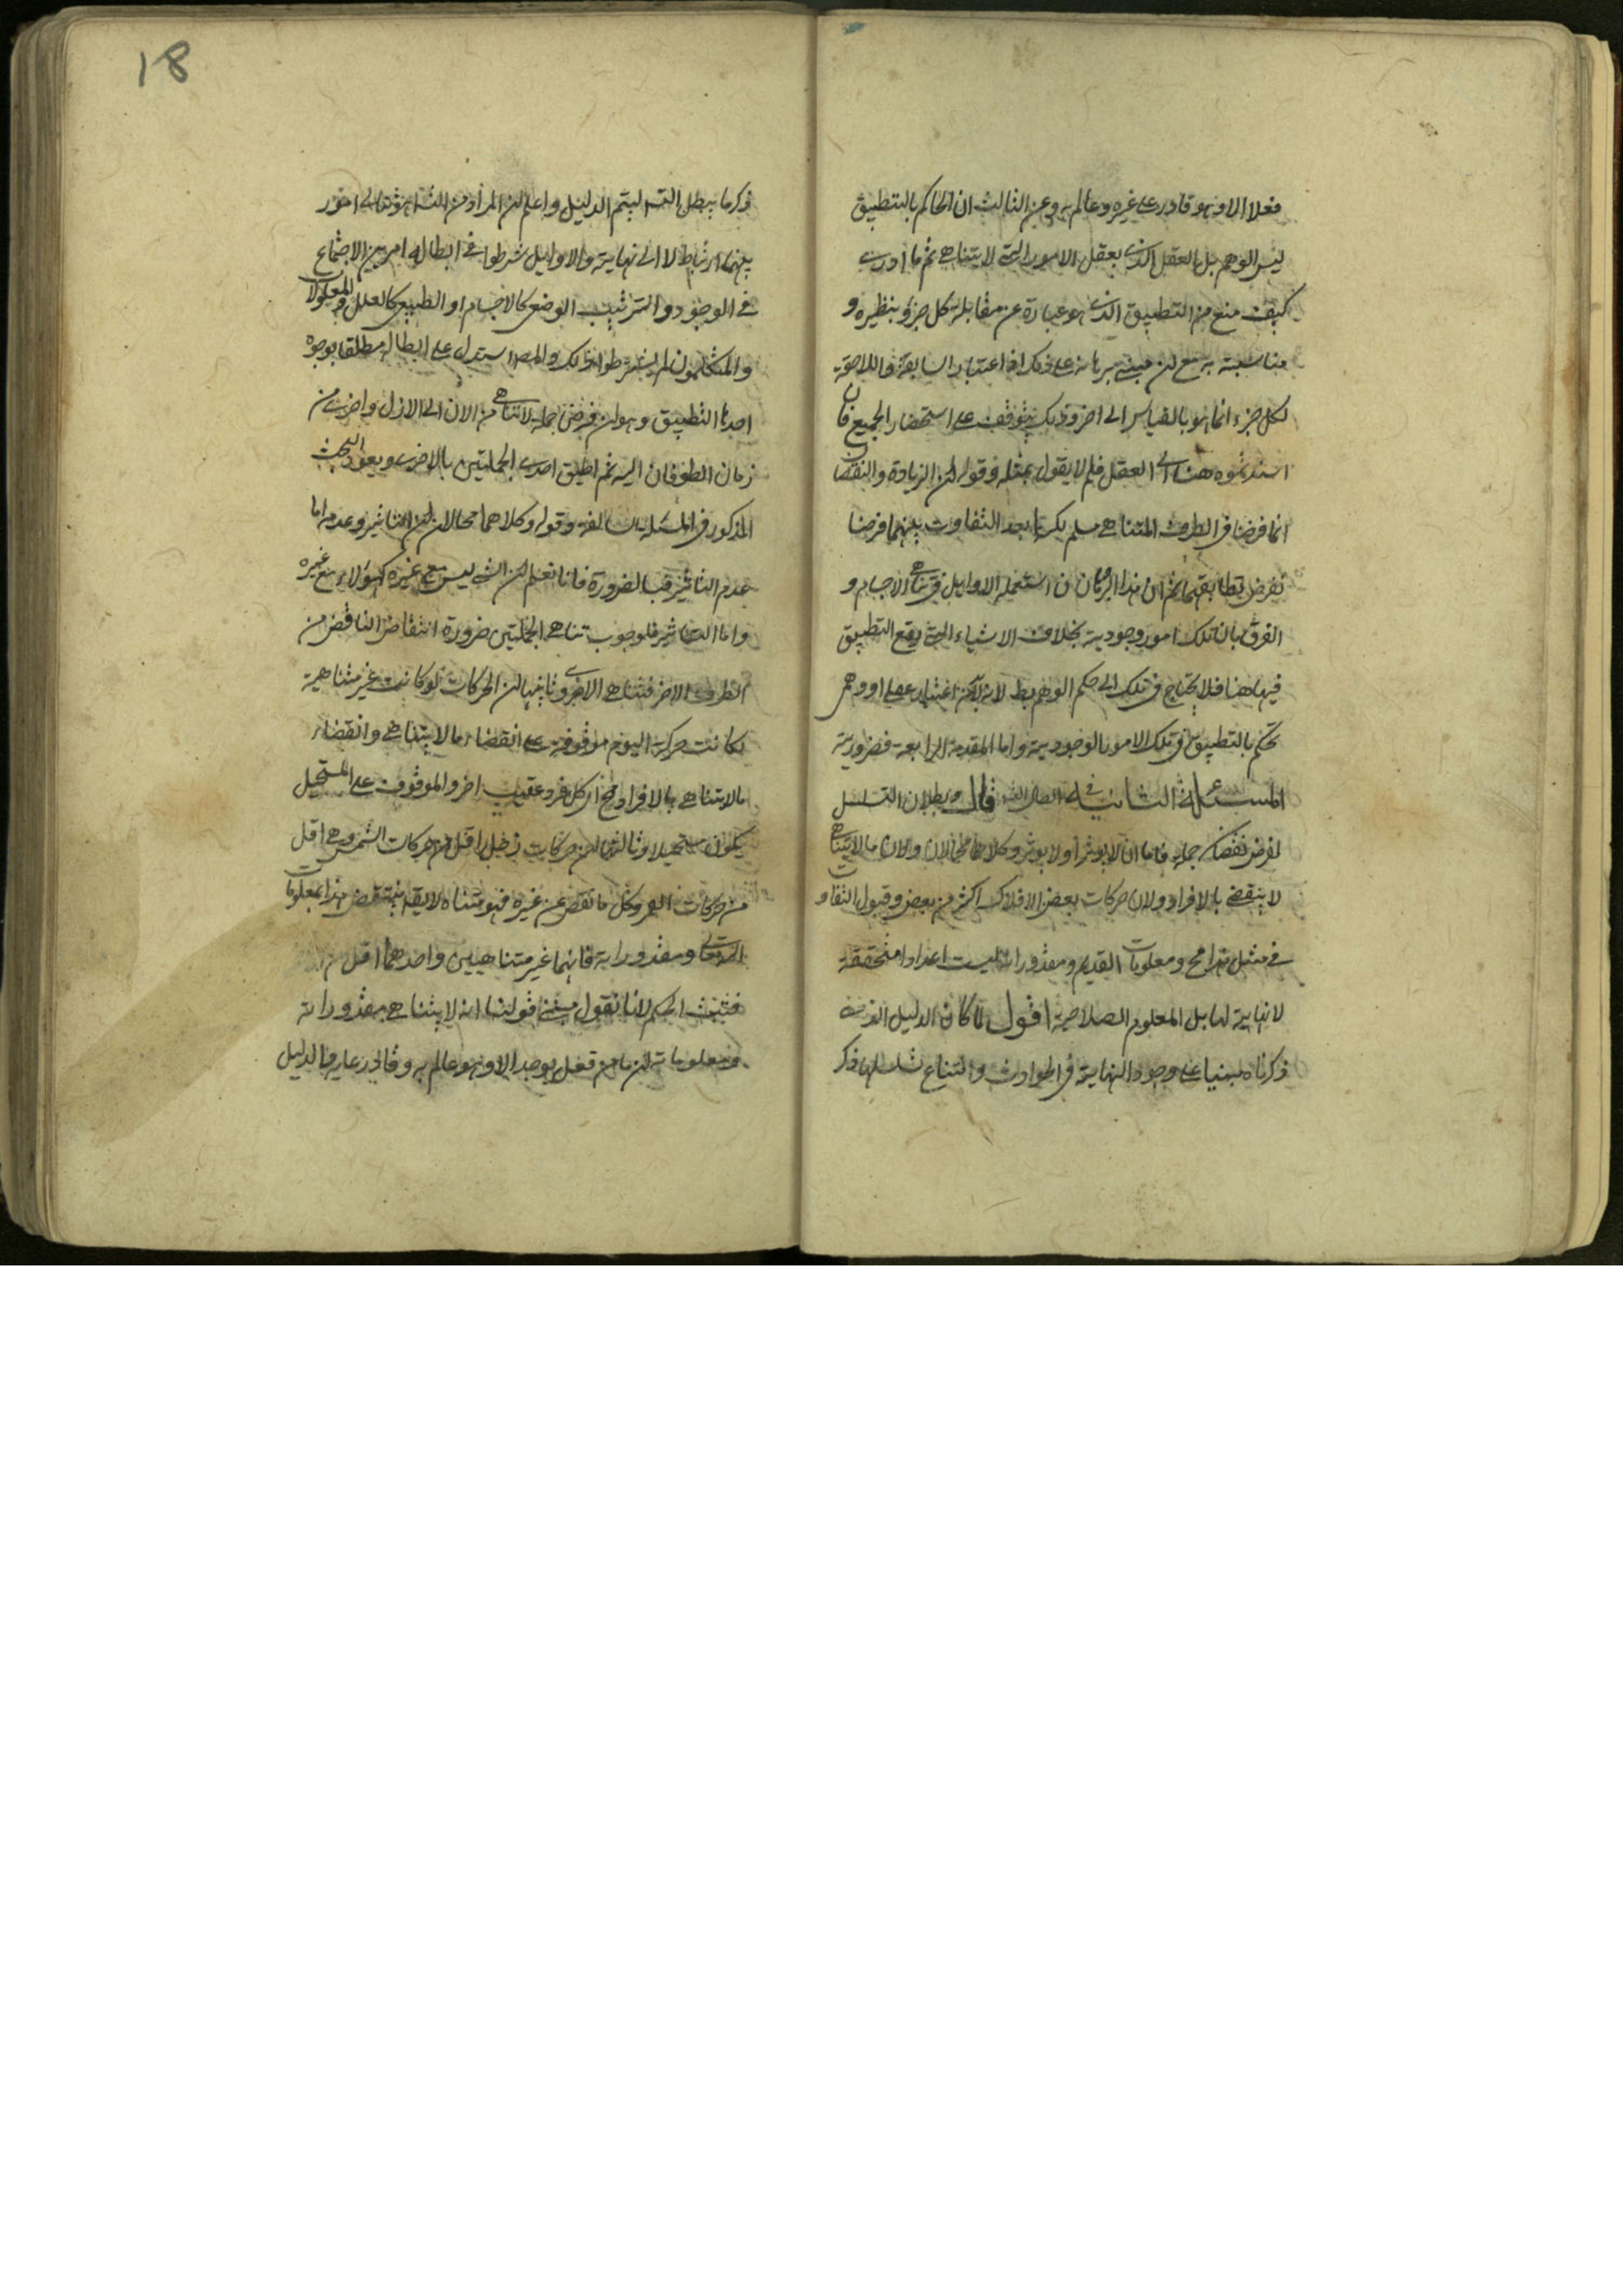 فعلا الا وهو قادر على غيره وعالم به وعن الثالث ان الحاكم بالتطبيق
ليس الوهم بل العقل الذي يعقل الامور التي لا يتناهى ثم ما ادري
كيف منع من التطبيق الذي هو عبارة عن مقابلة كل جزؤ بنظيره و
مناسبته به مع ان مبنى برهانه على ذلك اذ اعتبار السابقة واللاحقة
لكل جزء انما هو بالقياس الى اخر وذلك يتوقف على استحضار الجميع فان
اسندتموه هنا الى العقل فلم لا يقول بمثله وقوله ان الزيادة والنقصان
انما فرضنا في الطرف المتناهي مسلم لكنا بعد التفاوت بينهما فرضنا
نفرض تطابقهما ثم ان هذا البرهان استعمله الاوايل في تناهي الاجسام و
الفرق بان تلك امور وجودية بخلاف الاشياء التي يقع التطبيق
فيها هنا فلا يحتاج في تلك الى حكم الوهم بط لانه لا بد اعتبار عقلي او وهمي
تحكم بالتطبيق في تلك الامور الوجودية واما المقدمة الرابعة فضرورية
المسئلة الثانية في ابطال التس قال وبطلان التسلسل
لفرض نقصان جملة فاما ان لا يوثر او لا يوثر وكلاهما محالان ولان ما لا يتناهى
لا ينقضي بالافراد ولان حركات بعض الافلاك اكثر من بعض وقبول التفاوت
في مثل تراخ ومعلومات القديم ومقدوراته ليست اعدادا متحققة
لا نهاية لها بل المعلوم الصلاحية اقول لما كان الدليل الذي
ذكرناه مبنيا على وجود النهاية في الحوادث وامتناع تسلسلها ذكر
18
ذكر ما يبطل التس ليتم الدليل واعلم ان المراد من التس هو توالي امور
بينهما ارتباط لا الى نهاية والاوايل شرطوا في ابطاله امرين الاجتماع
في الوجود والترتيب الوضعي كالاجسام او الطبيعي كالعلل والمعلولات
والمتكلمون لم يشترطوا ذلك والمص استدل على ابطاله مطلقا بوجوه
احدها التطبيق وهو ان نفرض جملة لا تتناهى من الان الى الازل واخرى من
زمان الطوفان اليه ثم اطبق احدى الجملتين بالاخرى ويعود البحث
المذكور في المسئلة السالفة وقوله وكلاهما محالان اي التاثير وعدمه اما
عدم التاثير فبالضرورة فانا نعلم ان الشي ليس مع غيره كهو لا مع غيره
واما التاثير فلوجوب تناهي الجملتين ضرورة انتقاض الناقص من
الطرف الاخر فتناهى الاخرى وثانيها ان الحركات لو كانت غير متناهية
لكانت حركة اليوم موقوفة على انقضاء ما لا يتناهى وانقضاء
ما لا يتناهى بالافراد مح اذ كل فرد عقيب اخر والموقوف على المستحيل
يكون مستحيلا وثالثها ان حركات زحل اقل من حركات الشمس وهي اقل
من حركات القمر وكل ما نقص عن غيره فهو متناه لا يقال ينتقض هذا بمعلومات
الله تعالى ومقدوراته فانهما غير متناهيين واحدهما اقل من
فيثبت الحكم لانا نقول معنى قولنا انه لا يتناهى مقدوراته
ومعلوماته ان ما من فعل يوجد الا وهو عالم به وقادر عليه فالدليل